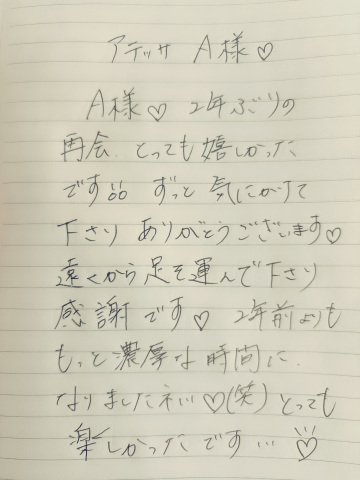 アテッサ A様♡
A様♡ 2年ぶりの
再会、とっても嬉しかった
です ずっと気にかけて
下さり ありがとうございます♡
遠くから足を運んで下さり
感謝です♡ 2年前よりも
もっと濃厚な時間に
なりましたネ♡(笑) とっても
楽しかったです… ♡